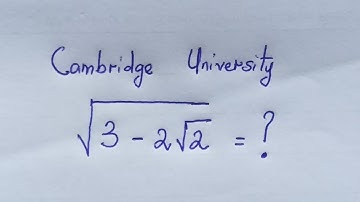 Cambridge University
√3 - 2√2 = ?